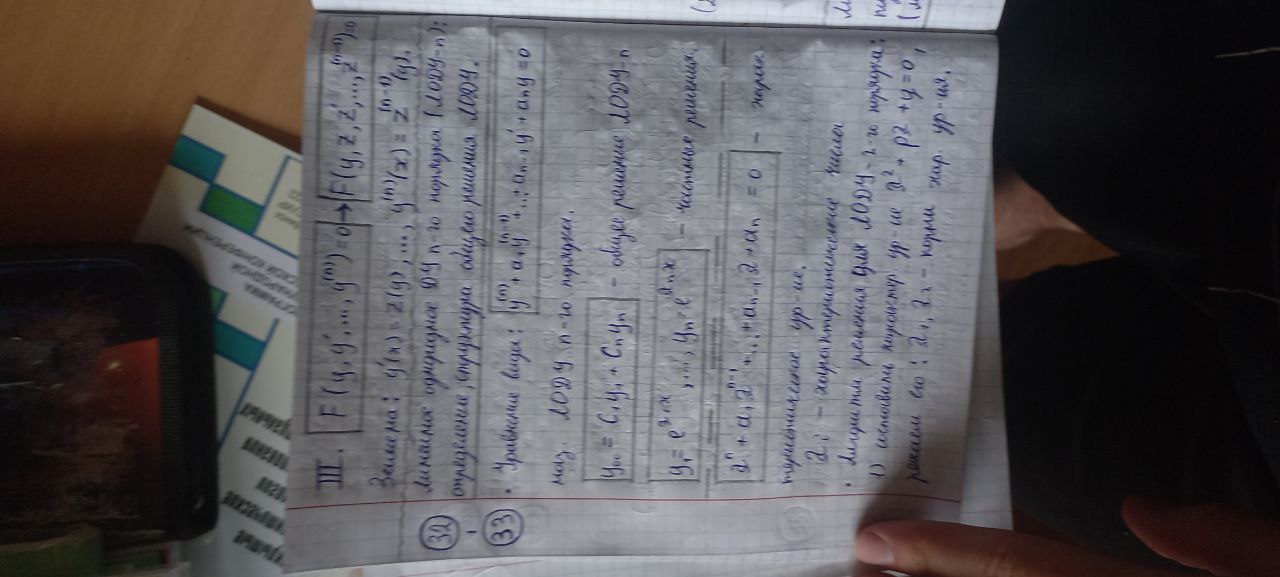 III. F(y, y', ..., y⁽ⁿ⁾) = 0 → F(y, z, z', ..., z⁽ⁿ⁻¹⁾) = 0
Замена: y'(x) = z(y), ..., y⁽ⁿ⁾(x) = z⁽ⁿ⁻¹⁾(y).
32 Линейное однородное ДУ n-го порядка (ЛОДУ-n):
определение, структура общего решения ЛОДУ.
33 • Уравнение вида: y⁽ⁿ⁾ + a₁y⁽ⁿ⁻¹⁾ + ... + aₙ₋₁y' + aₙy = 0
наз. ЛОДУ n-го порядка.
yₒₒ = C₁y₁ + Cₙyₙ - общее решение ЛОДУ-n
y₁ = e^λ₁x, ..., yₙ = e^λₙx - частные решения.
λⁿ + a₁λⁿ⁻¹ + ... + aₙ₋₁λ + aₙ = 0 - харак
теристическое ур-ие.
λᵢ - характеристические числа
• Алгоритм решения для ЛОДУ-2-го порядка:
1) составим характер ур-ие λ² + pλ + y = 0,
решаем его: λ₁, λ₂ - корни хар. ур-ия.
ОТПРАВКА
НАРОДНОЙ
СКОЙ КОНФЕРЕНЦИИ